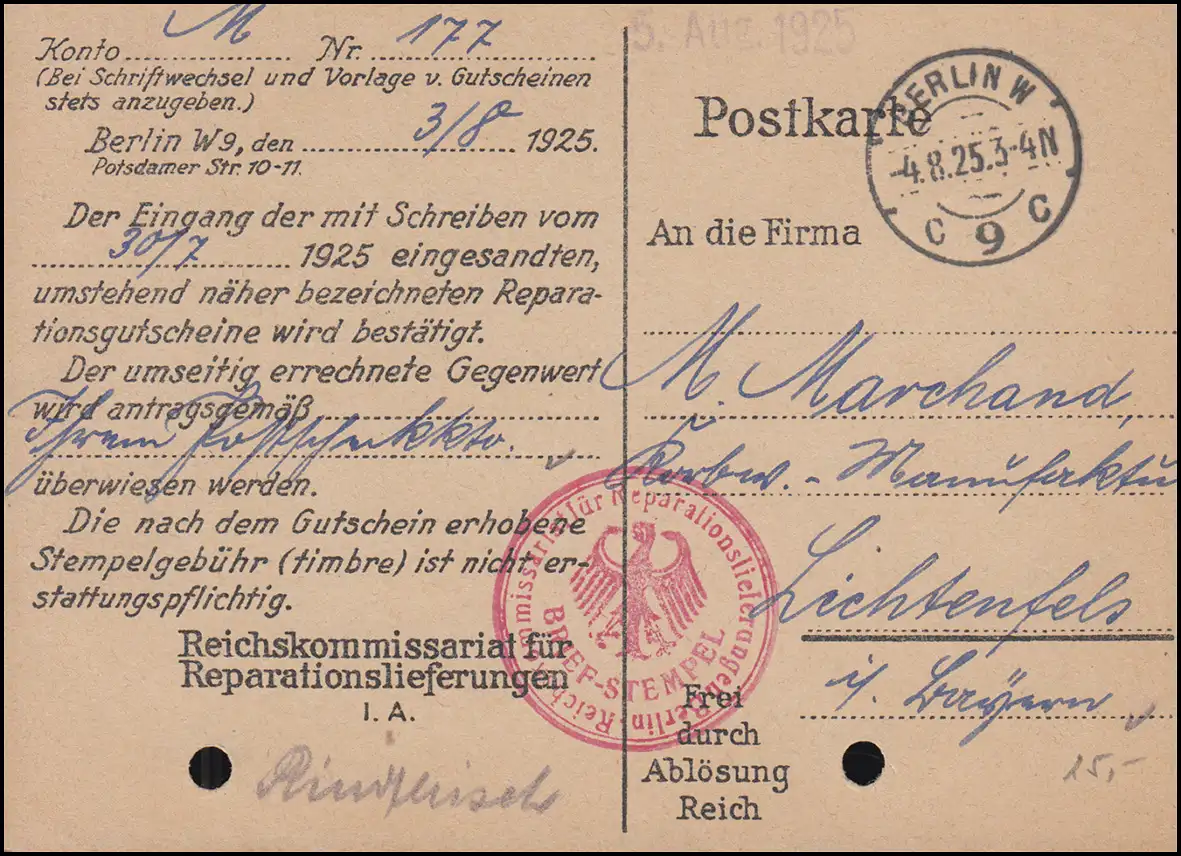 Konto M Nr. 177
(Bei Schriftwechsel und Vorlage v. Gutscheinen
stets anzugeben.)
Berlin W9, den 3/8 1925.
Potsdamer Str. 10-11.
Der Eingang der mit Schreiben vom
30/7 1925 eingesandten,
umstehend näher bezeichneten Repara-
tionsgutscheine wird bestätigt.
Der umseitig errechnete Gegenwert
wird antragsgemäß
Ihrem Postscheckkto.
überwiesen werden.
Die nach dem Gutschein erhobene
Stempelgebühr (timbre) ist nicht er-
stattungspflichtig.
Reichskommissariat für
Reparationslieferungen
I. A.
Rindfleisch
5. Aug. 1925
Postkarte
BERLIN W
-4.8.25.3-4N
C 9 C
An die Firma
M. Marchand,
Korbw.-Manufaktu
Lichtenfels
i/. Bayern
Reichskommissariat für Reparationslieferungen Berlin
BRIEF-STEMPEL
Frei
durch
Ablösung
Reich
15,-